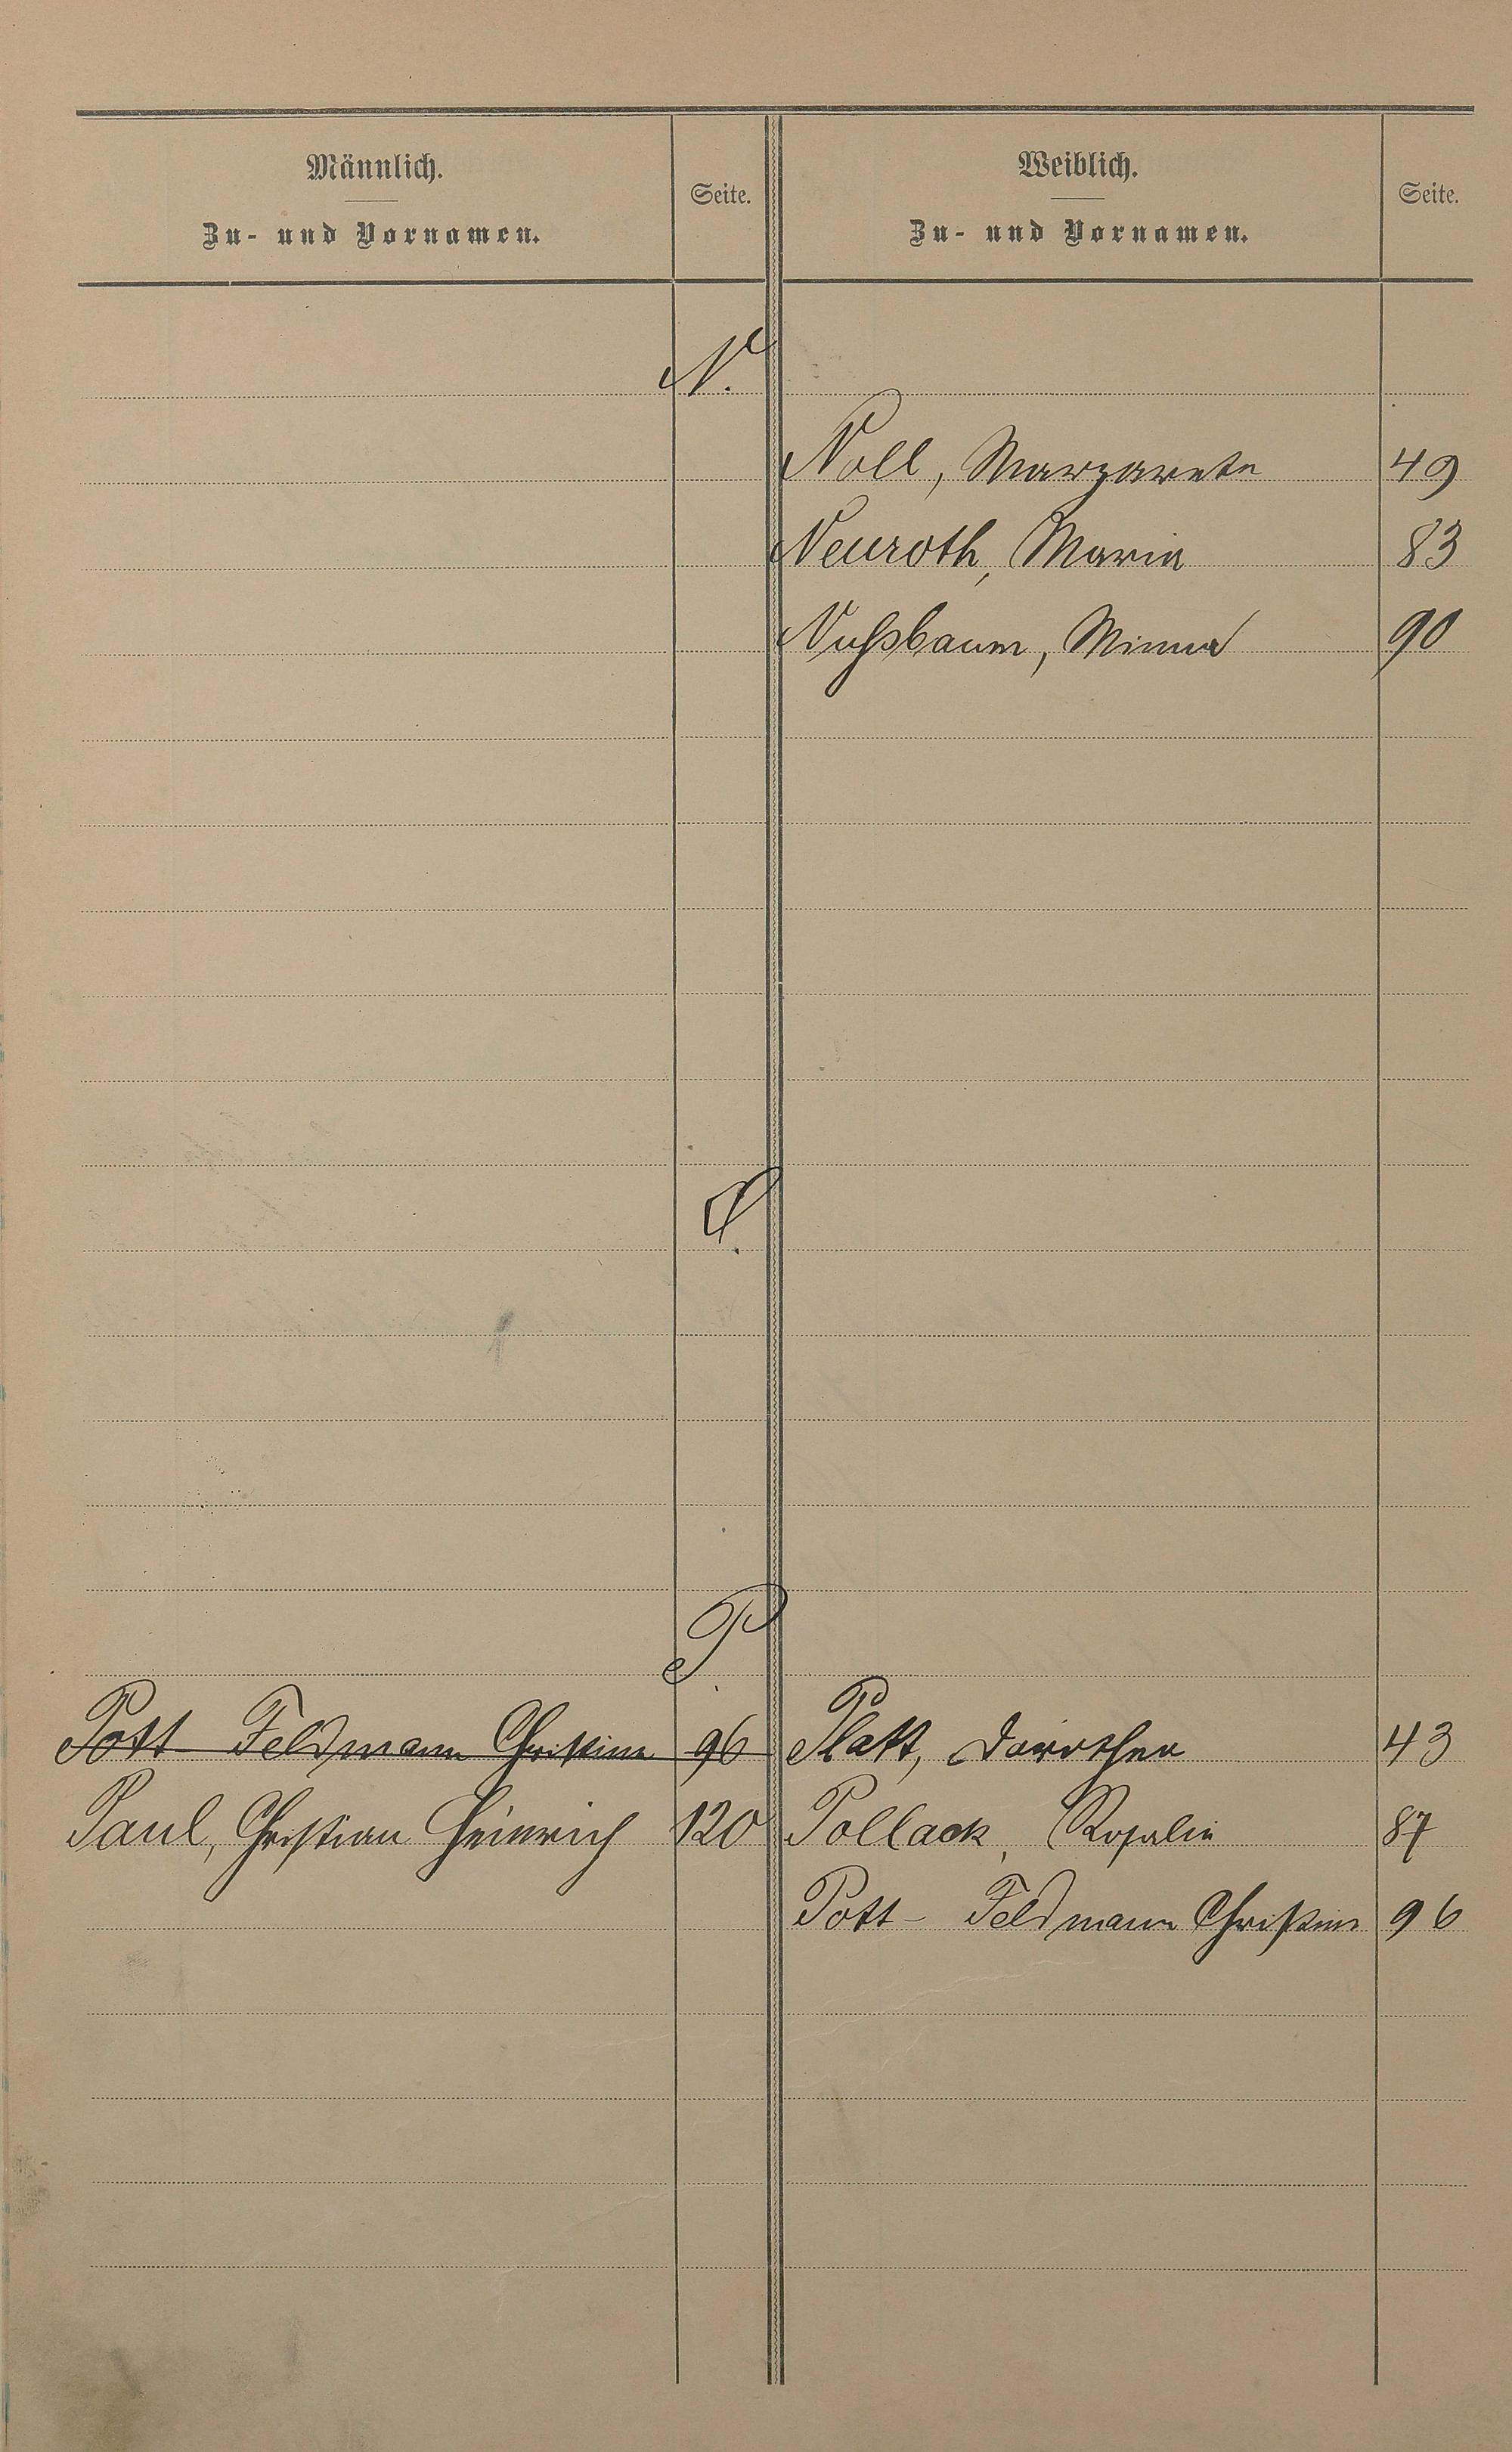 Männlich.
Zu- und Vornamen.
Seite.
Weiblich.
Zu- und Vornamen.
Seite.
N.
Noll, Margarete 49
Neuroth, Maria 83
Nußbaum, Minna 90
O.
P.
Pott Feldmann Christine 96 Platt, Dorothea 43
Paul, Christian Heinrich 120 Pollack, Rosalie 87
Pott- Feldmann Christine 96